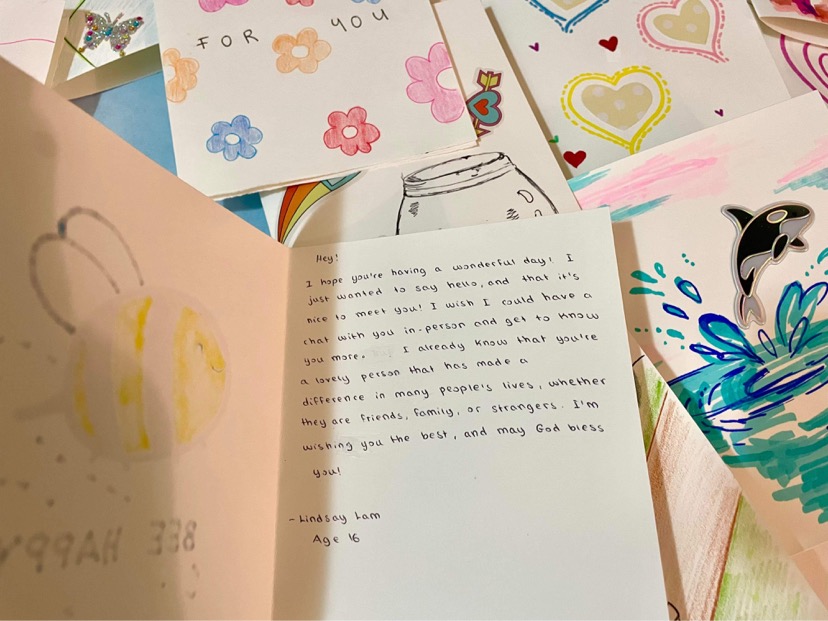 FOR YOU
Hey!
I hope you're having a wonderful day! I
just wanted to say hello, and that it's
nice to meet you! I wish I could have a
chat with you in-person and get to know
you more. I already know that you're
a lovely person that has made a
difference in many people's lives, whether
they are friends, family, or strangers. I'm
wishing you the best, and may God bless
you!
-Lindsay Lam
Age 16
BEE HAPPY